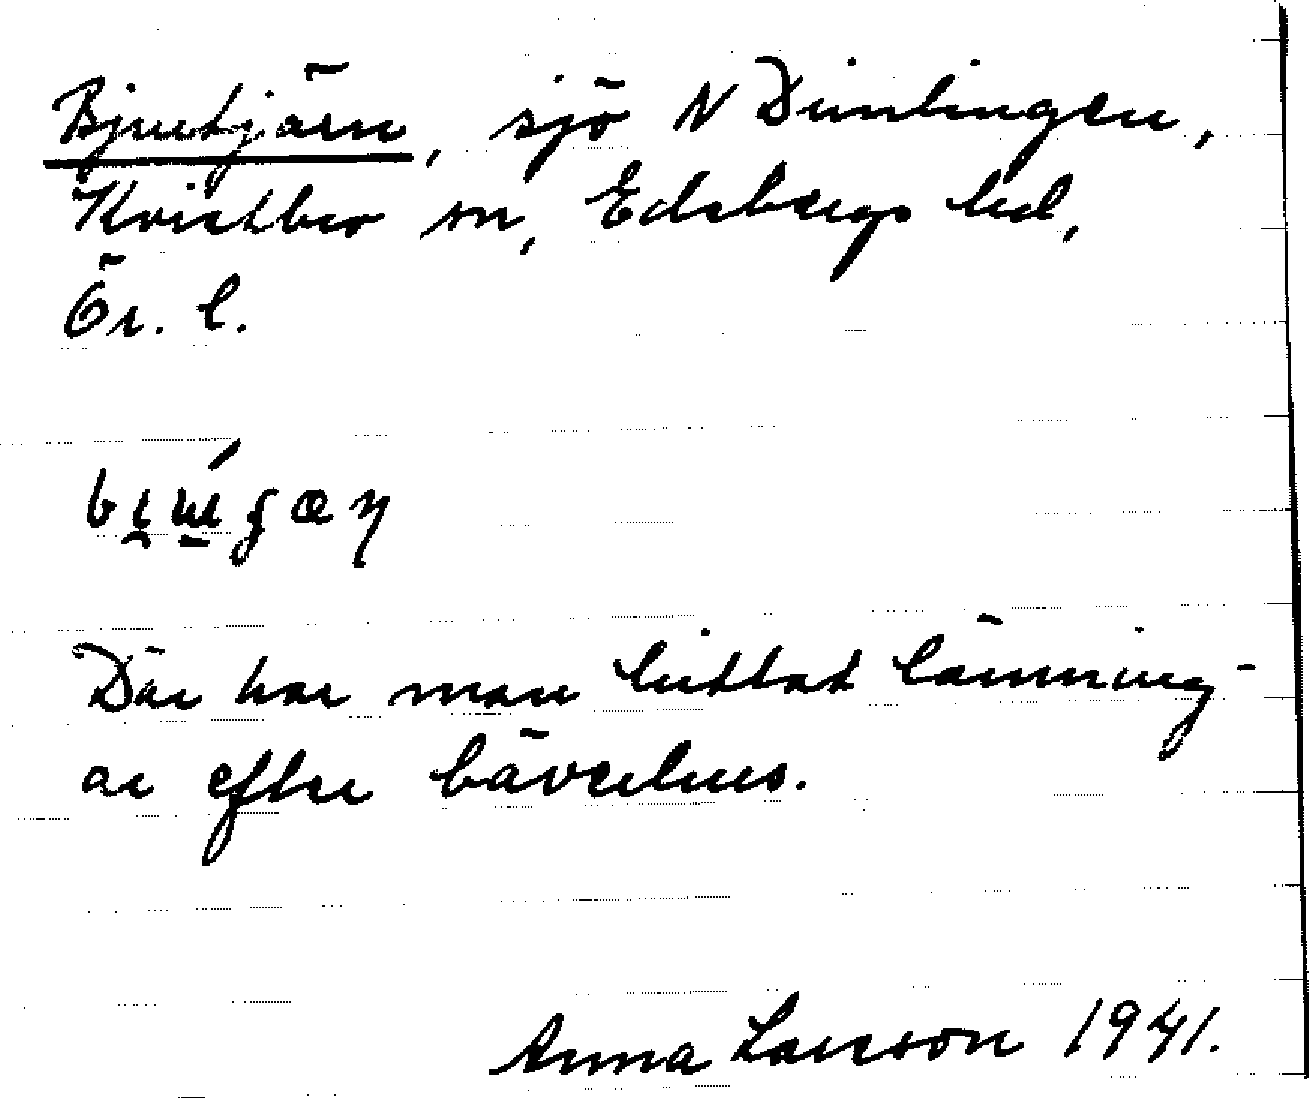 Bjurtjärn, sjö N Dimlingen,
Kvistbro sn, Edsbergs hd,
Ör. l.
Där har man hittat lämning-
ar efter bäverhus.
Anna Larsson 1941.